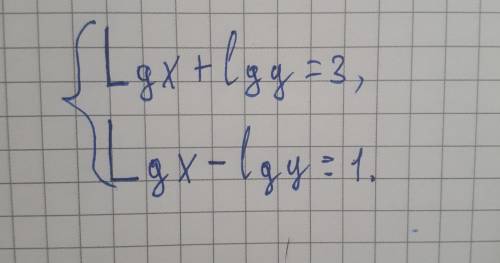 Lgx + lgy = 3,
Lgx - lgy = 1.